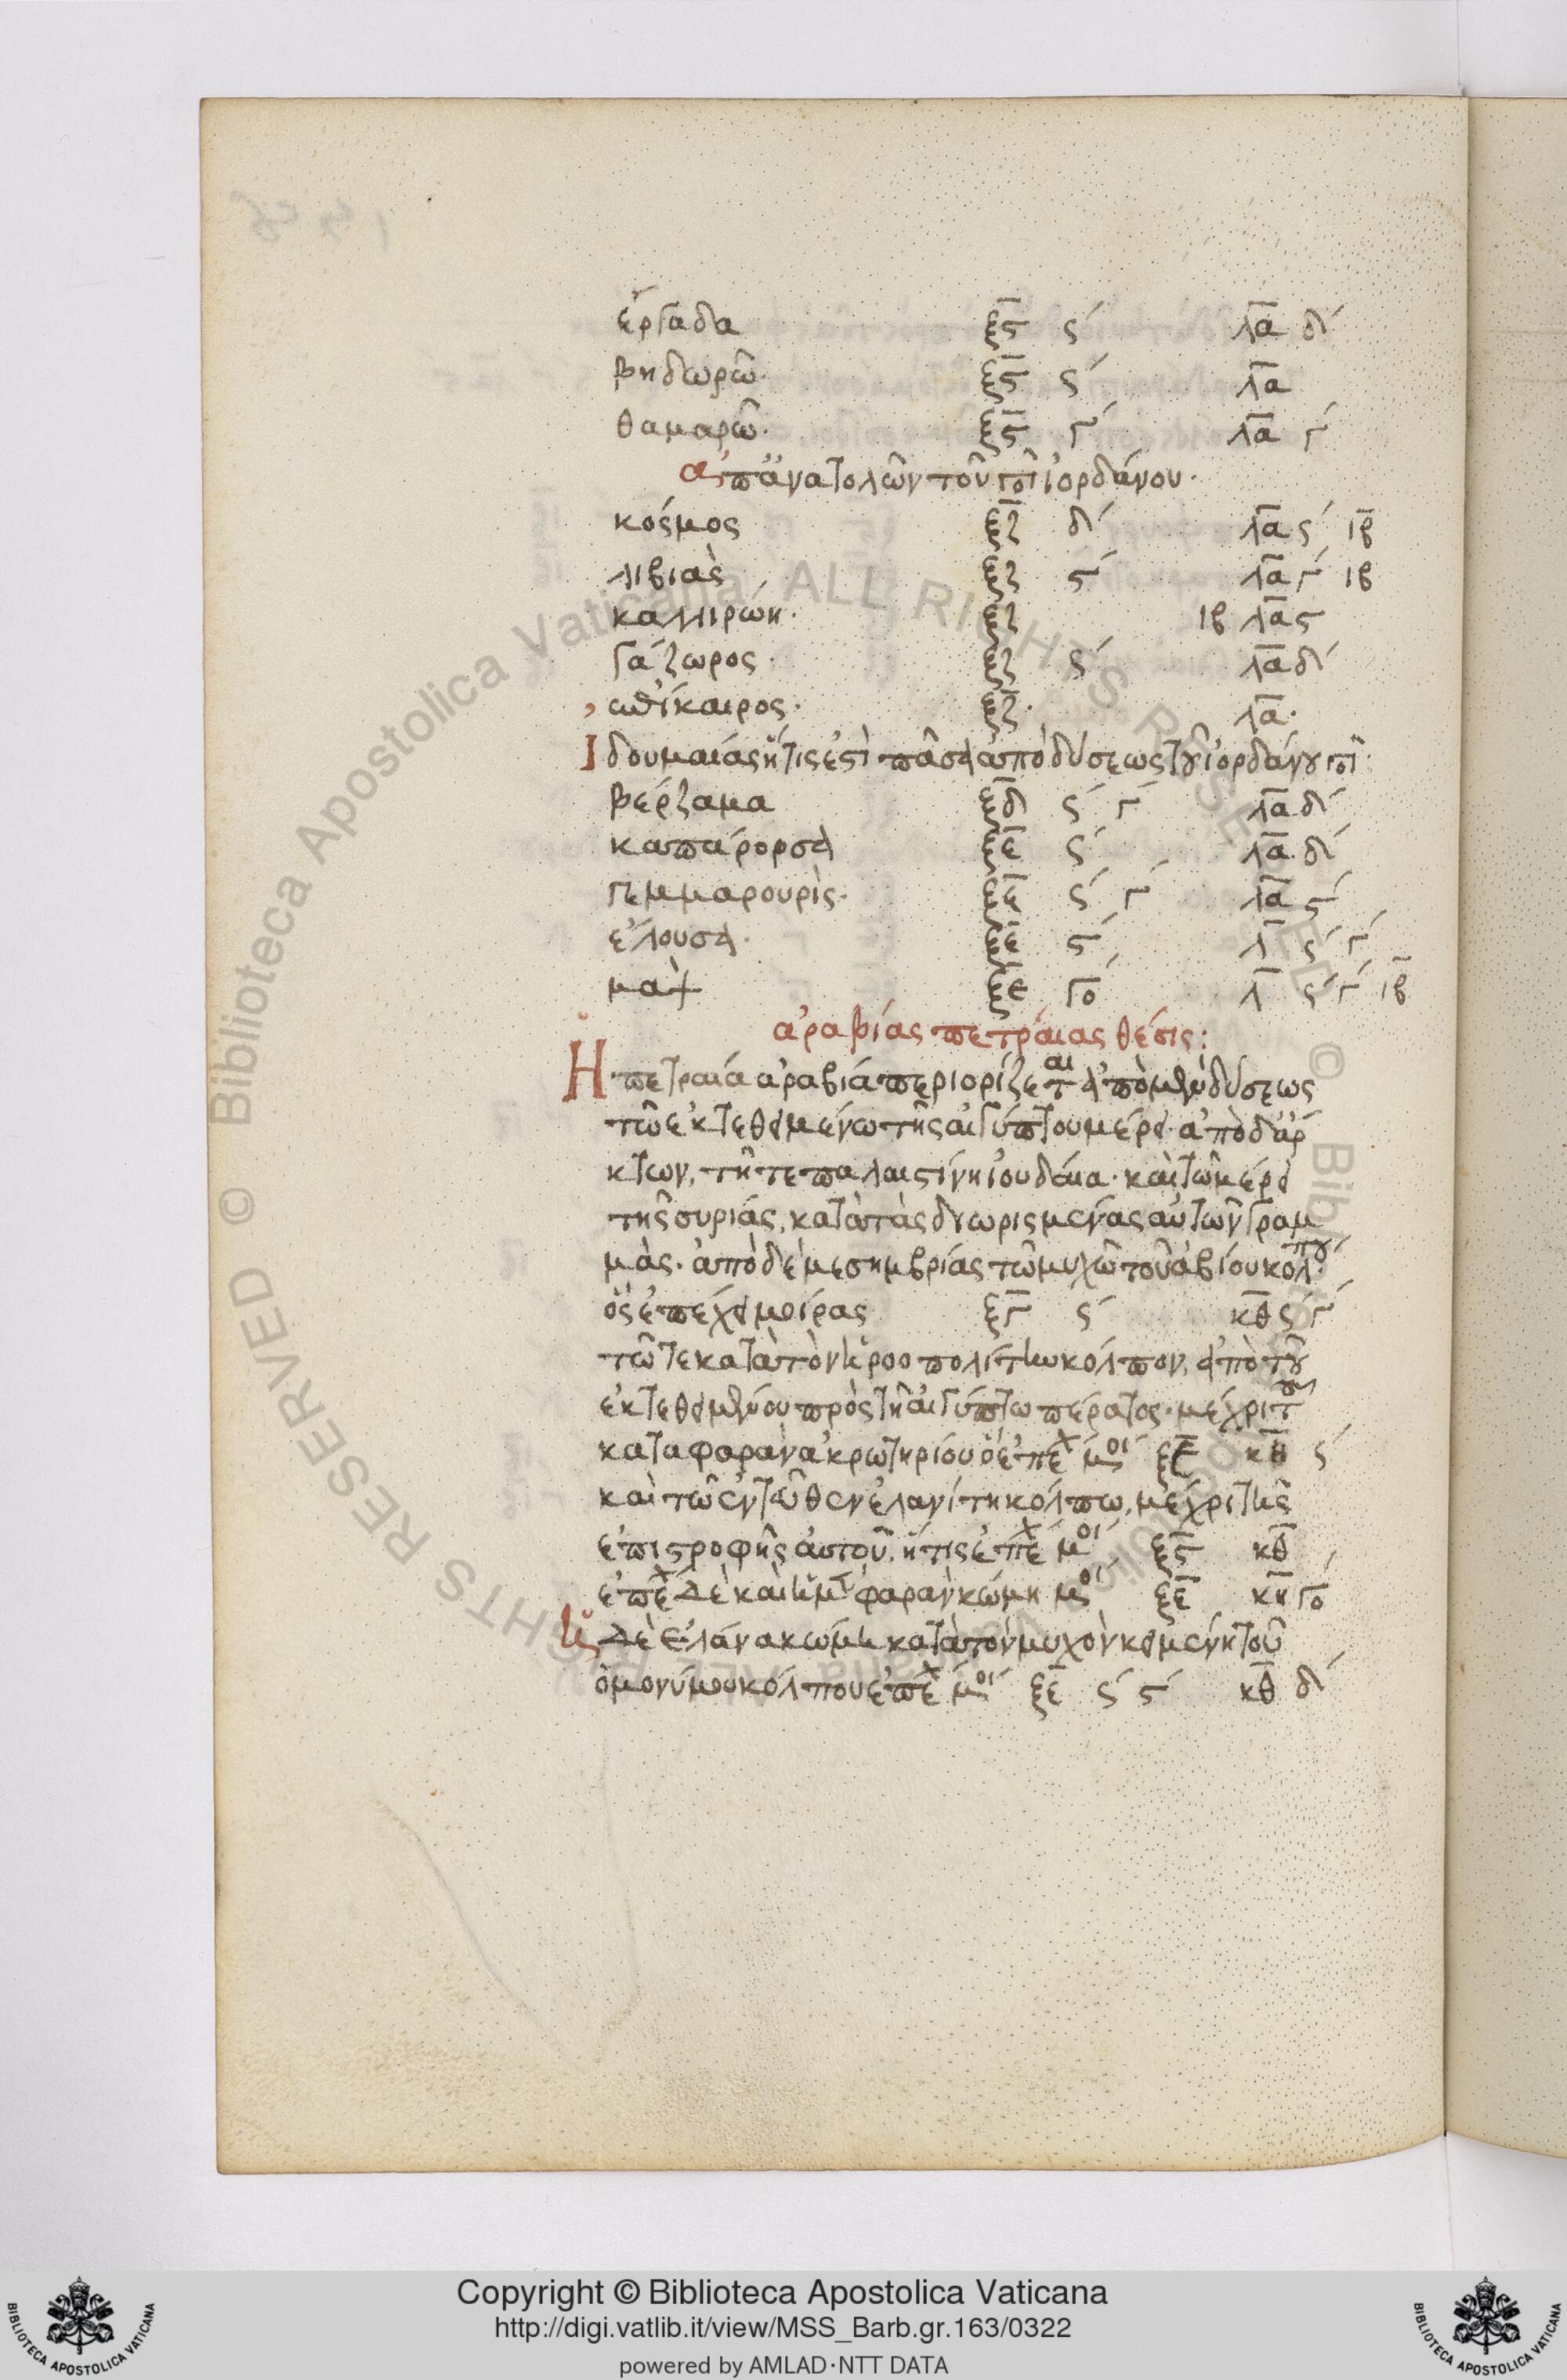 ἐργάδα ξϛ ϛ´ λα δ´
βηδωρῶ· ξϛ ϛ´ λα
θαμαρῶ· ξϛ γ´ λα γ´
ἀπἀνατολῶν τοῦ ποτ ἰορδάνου·
κόσμος ξζ δ´ λα ϛ´ ιβ
λιβιὰς ξζ ϛ´ λα γ´ ιβ
καλλιρώη· ξζ ιβ λα ϛ
γάζωρος· ξζ ϛ´ λα δ´
ἐπίκαιρος· ξζ· λα·
Ἰδουμαίας ἥτις ἐστὶ πᾶσα ἀπὸ δύσεως τοῦ ἰορδάνου ποτ
βέρζαμα ξδ ϛ´ γ´ λα δ´
καπάρορσα ξε ϛ´ λα δ´
γεμμαρουρὶς· ξε ϛ´ γ´ λα ϛ´
ἔλουσα· ξε ϛ´ λ ϛ´ γ´
μὰψ ξε γο´ λ ϛ´ γ´ ιβ
ἀραβίας πετραίας θέσις:
Ἡ πετραία ἀραβία περιορίζεται ἀπὸ μὲν δύσεως
τῶ ἐκτεθειμένω τῆς αἰγύπτου μέρει· ἀπὸ δ ἄρ
κτων, τῆ τε παλαιστίνη ἰουδαία· καὶ τῶ μέρει
τῆς συρίας, κατὰ τὰς διωρισμένας αὐτῶν γραμ
μάς· ἀπὸ δὲ μεσημβρίας τῶ μυχῶ τοῦ ἀβίου κόλπου·
ὃς ἐπέχει μοίρας ξγ ϛ´ κθ ϛ´ γ´
τῶ τε κατὰ τὸν ἡροοπολίτην κόλπον, ἀπὸ τοῦ
ἐκτεθειμένου πρὸς τῆ αἰγύπτω πέρατος· μέχρι τοῦ
κατα φαρὰν ἀκρωτηρίου ὃ ἐπέχ μοί ξε κθ ϛ´
καὶ τῶ ἐντεῦθεν ἐλανίτη κόλπω, μέχρι τῆς
ἐπιστροφῆς αὐτοῦ, ἥτις ἐπέχ μοί ξϛ κθ
ἐπέχ δὲ καὶ ἡ μτ φαρὰν κώμη μοί ξε κη γο´
ἡ δὲ ἐλάνα κώμη κατὰ τὸν μυχὸν κειμένη τοῦ
ὁμονύμου κόλπου ἐπέχ μοί ξε ϛ´ ϛ´ κθ δ´
Copyright © Biblioteca Apostolica Vaticana
http://digi.vatlib.it/view/MSS_Barb.gr.163/0322
powered by AMLAD·NTT DATA